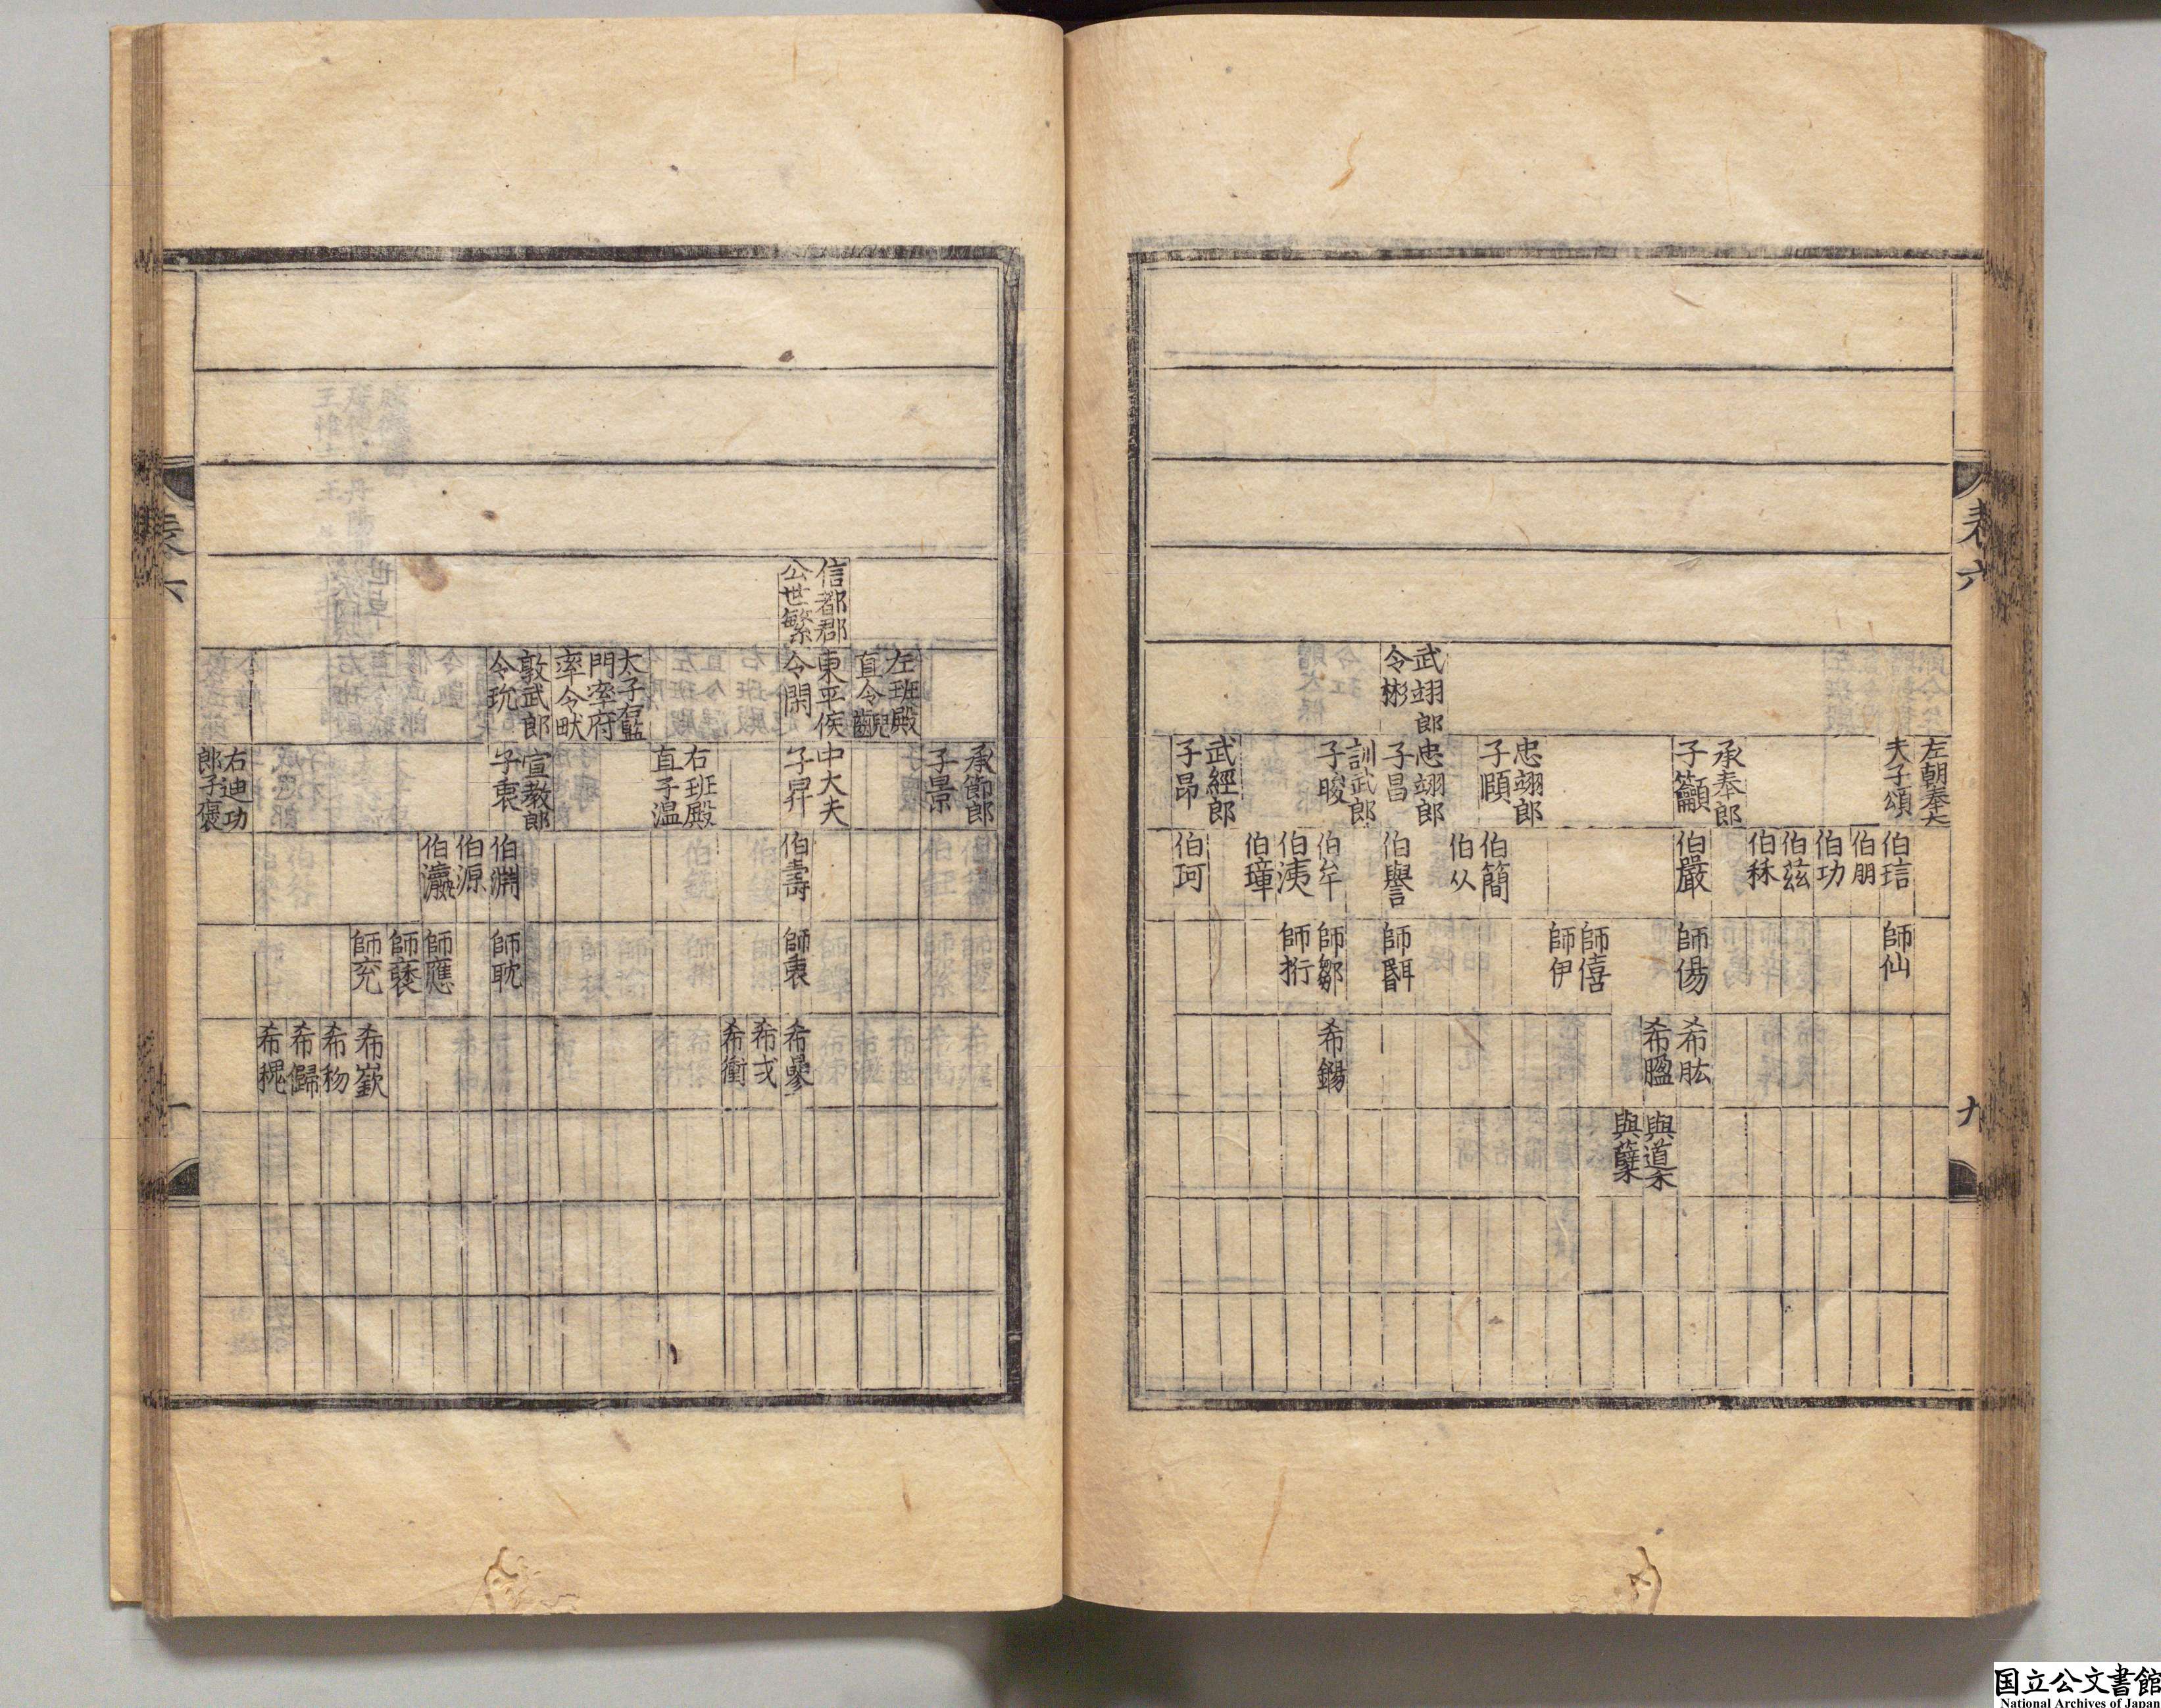 表六
九
武翊郎
令彬
左朝奉大
夫子頌
承奉郎
子籲
忠翊郎
子頤
忠翊郎
子昌
訓武郎
子晙
武經郎
子昂
伯琂
伯朋
伯功
伯茲
伯秝
伯嚴
伯簡
伯从
伯譽
伯牟
伯洟
伯璋
伯珂
師仙
師傷
師僖
師伊
師鄒
師珩
希肱
希腽
希鍚
與蘖
信都郡
公世繁
左班殿
直令齯
東平侯
令閑
太子右監
門率府
率令畎
敦武郎
令玧
承節郎
子景
中大夫
子昇
右班殿
直子温
宣教郎
子衷
右迪功
郎子褒
伯壽
伯淵
伯源
伯瀛
師衷
師耽
師應
師褎
師充
希戓
希衢
希嶔
希物
希歸
希穊
表六
国立公文書館
National Archives of Japan